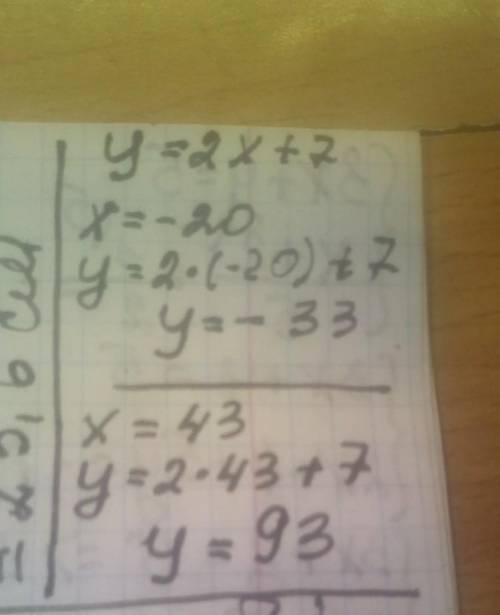 y = 2x + 7
x = -20
y = 2·(-20) + 7
y = - 33
x = 43
y = 2·43 + 7
y = 93